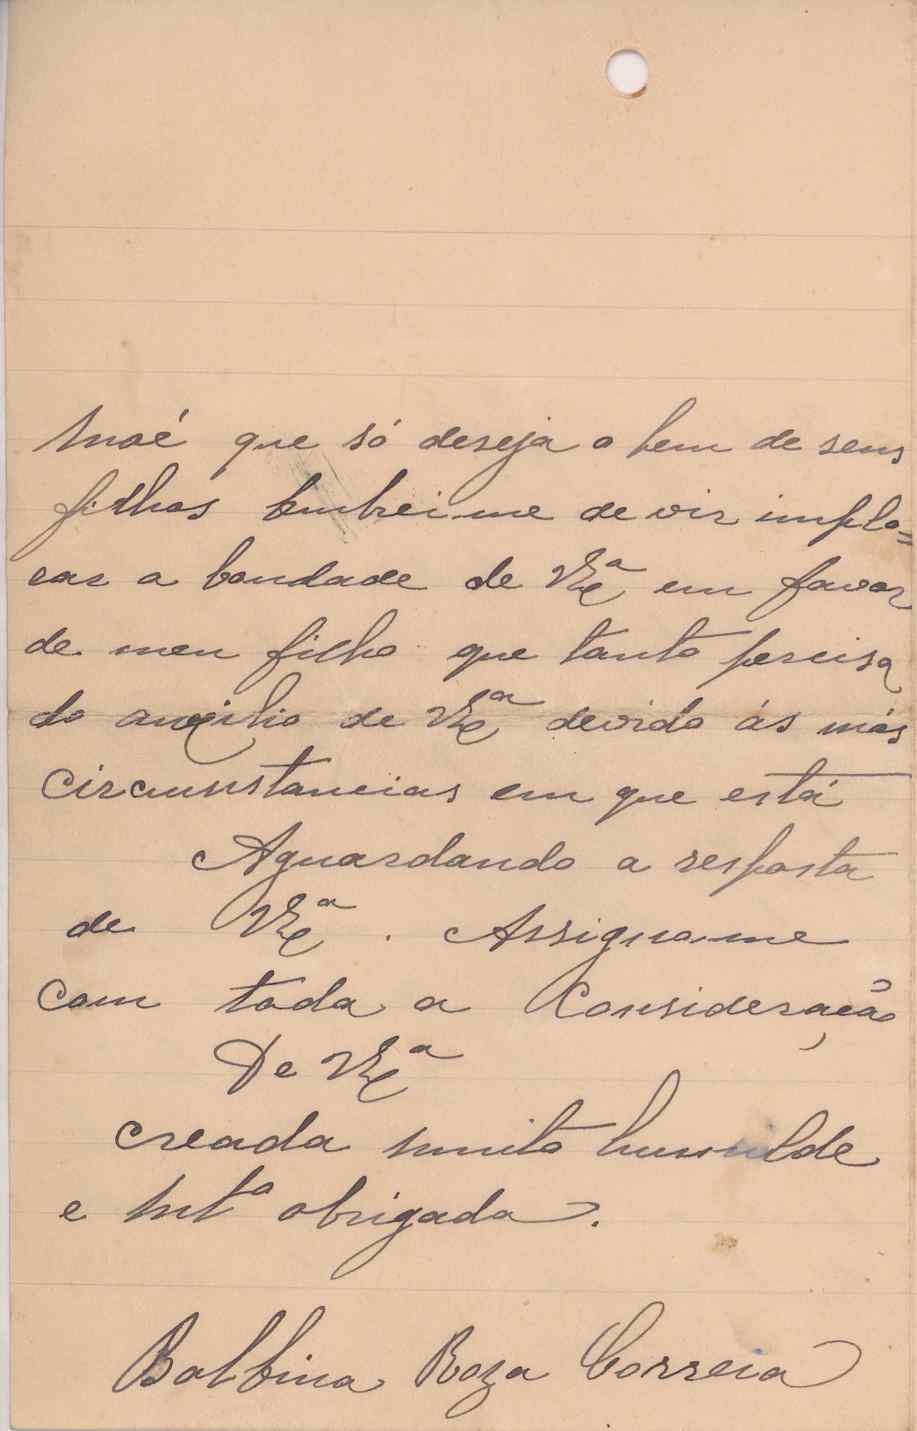 Maé que só deseja o bem de seus
filhos lembrei-me de vir implo=
rar a bondade de VExª em favor
de meu filho que tanto percisa
do auxilio de VExª devido ás más
circumstancias em que está
Aguardando a resposta
de VExª. Assigno-me
com toda a Consideração
De VExª
creada muito humilde
e Mtª obrigada.
Balbina Roza Correia